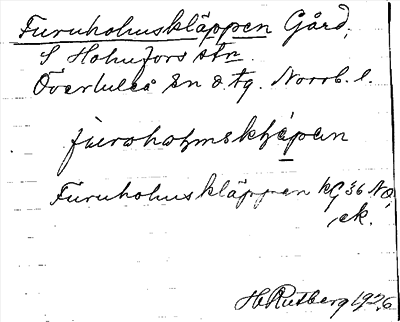 Furuholmskläppen Gård,
S Holmfors stn.
Överluleå sn o tg. Norrb. l.
furohołmskłépen
Furuholmskläppen kG 36 NO
ek.
H Rutberg 1926